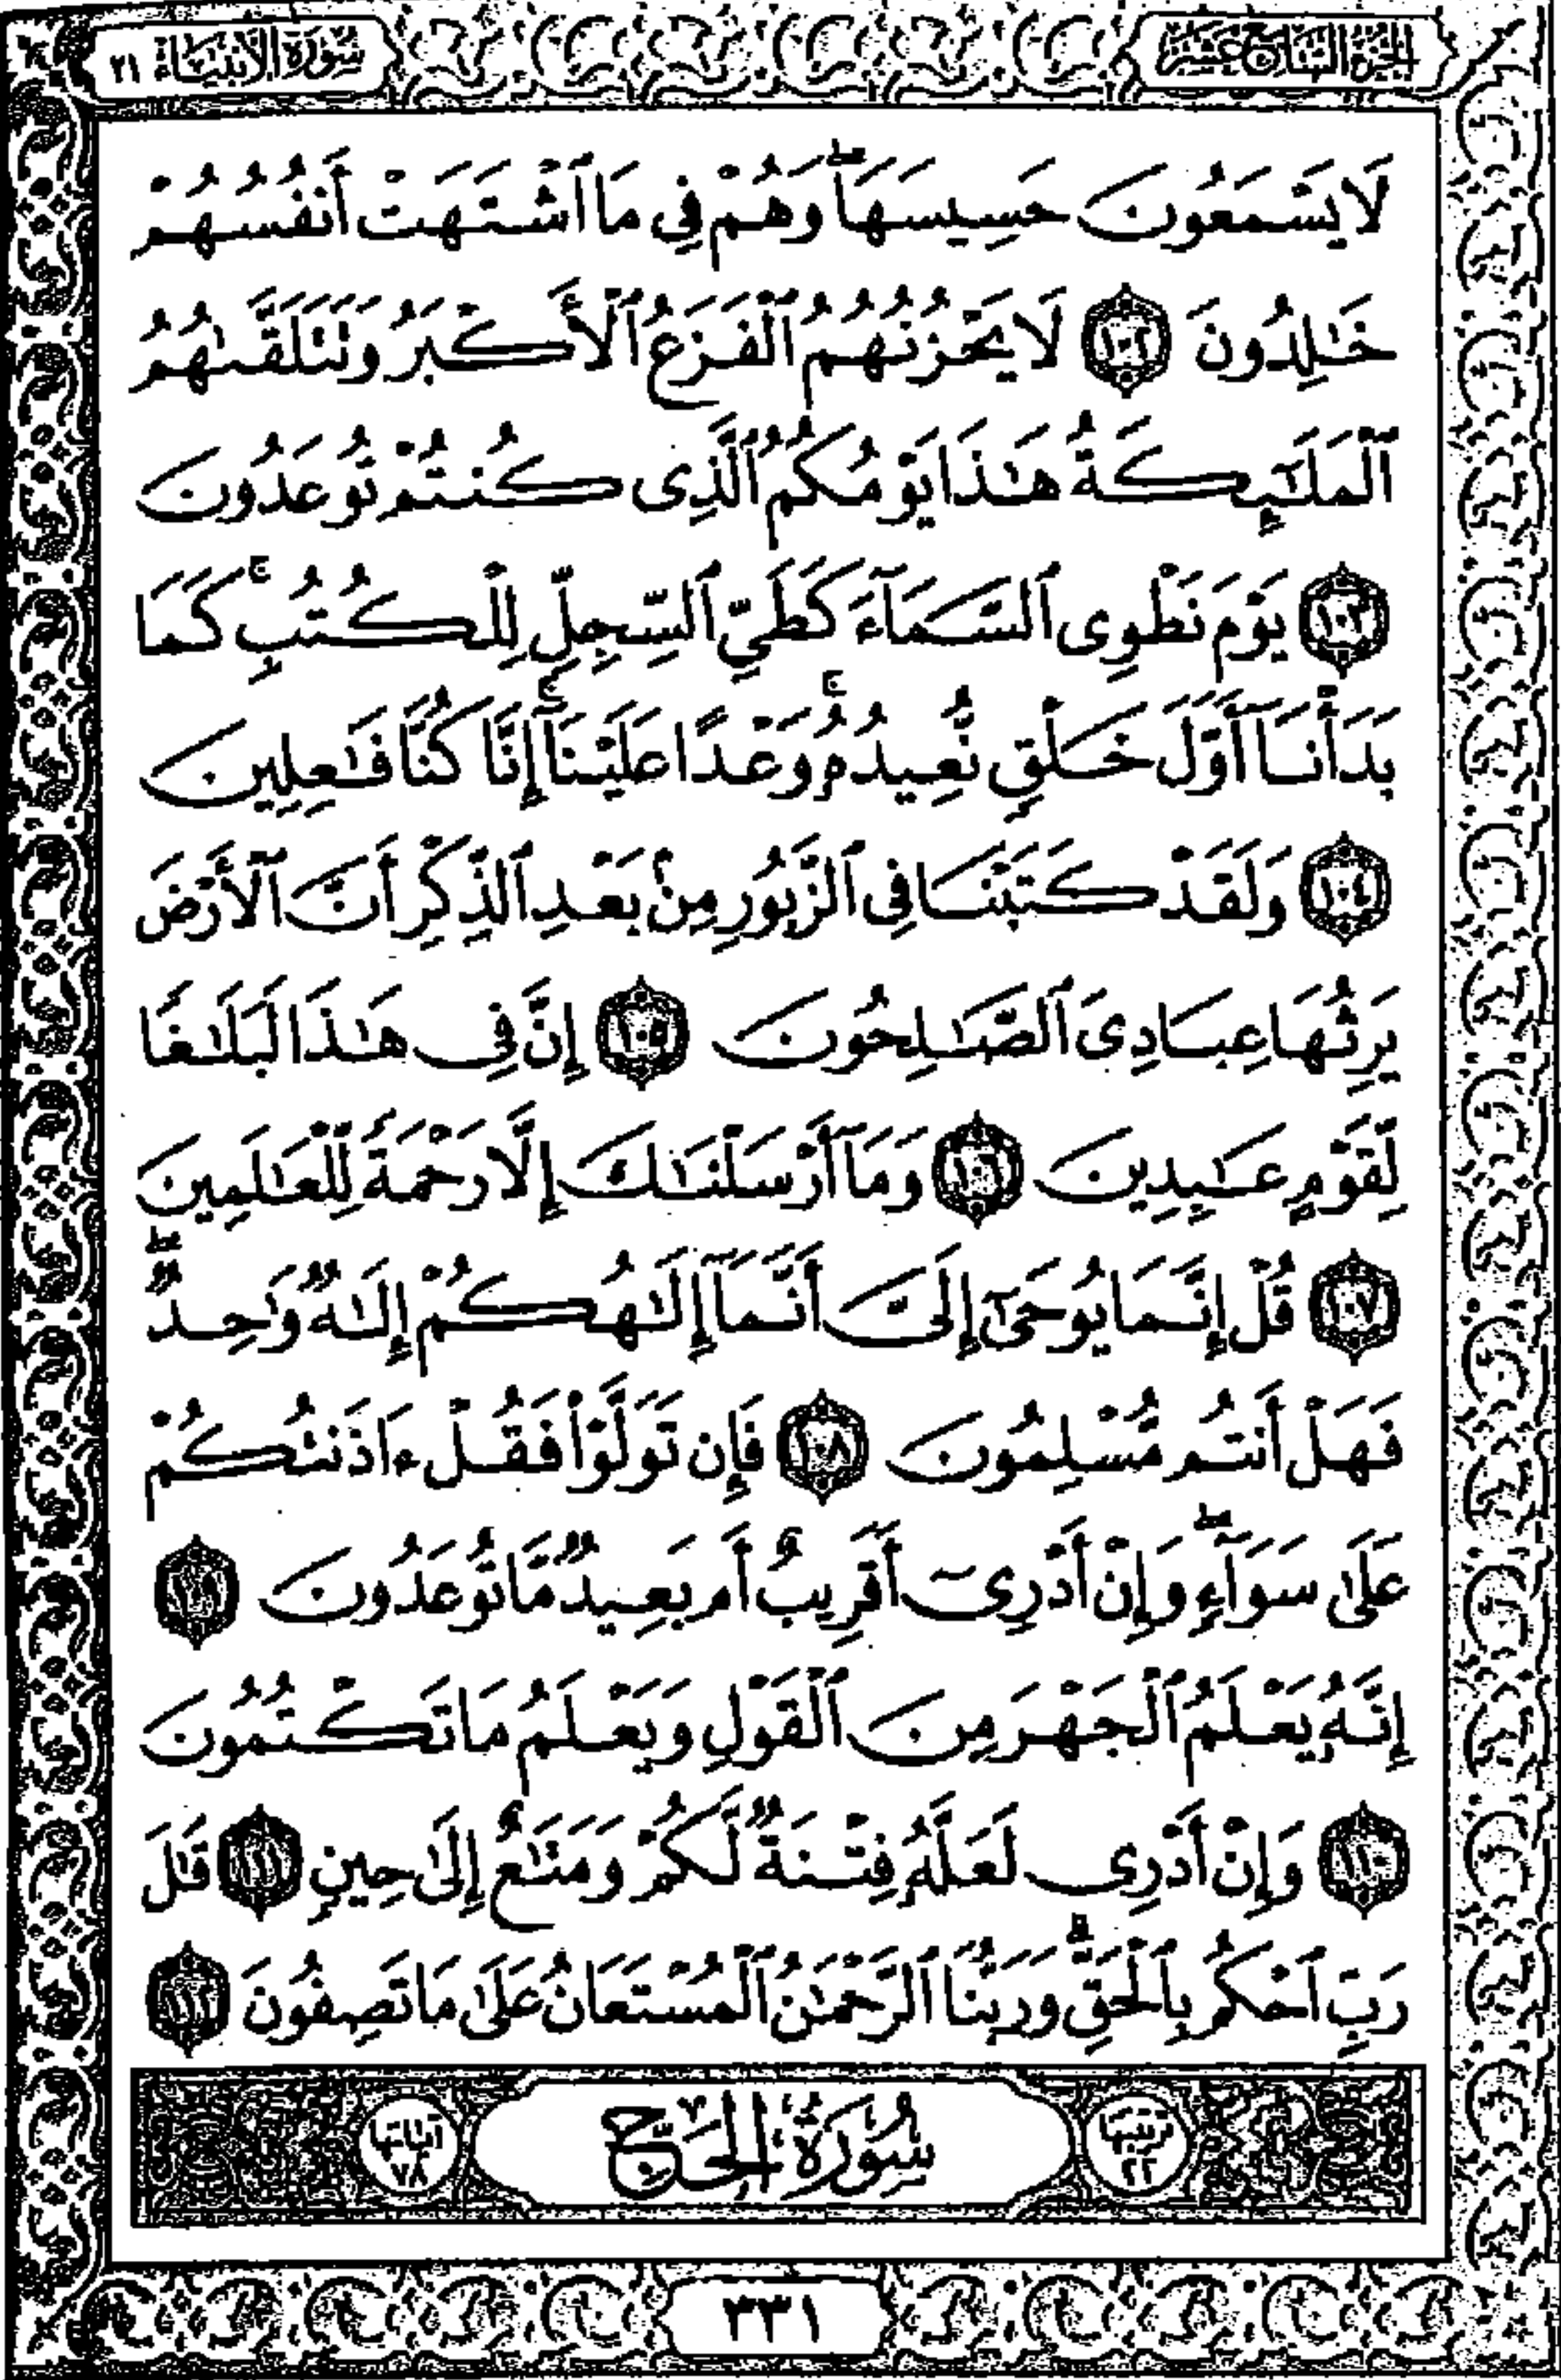 الجزء السابع عشر
سورة الأنبياء ٢١
لَا يَسْمَعُونَ حَسِيسَهَا ۖ وَهُمْ فِي مَا ٱشْتَهَتْ أَنفُسُهُمْ
خَٰلِدُونَ ١٠٢ لَا يَحْزُنُهُمُ ٱلْفَزَعُ ٱلْأَكْبَرُ وَتَتَلَقَّىٰهُمُ
ٱلْمَلَٰٓئِكَةُ هَٰذَا يَوْمُكُمُ ٱلَّذِى كُنتُمْ تُوعَدُونَ
١٠٣ يَوْمَ نَطْوِى ٱلسَّمَآءَ كَطَىِّ ٱلسِّجِلِّ لِلْكُتُبِ ۚ كَمَا
بَدَأْنَآ أَوَّلَ خَلْقٍ نُّعِيدُهُۥ ۚ وَعْدًا عَلَيْنَآ ۚ إِنَّا كُنَّا فَٰعِلِينَ
١٠٤ وَلَقَدْ كَتَبْنَا فِى ٱلزَّبُورِ مِنۢ بَعْدِ ٱلذِّكْرِ أَنَّ ٱلْأَرْضَ
يَرِثُهَا عِبَادِىَ ٱلصَّٰلِحُونَ ١٠٥ إِنَّ فِى هَٰذَا لَبَلَٰغًا
لِّقَوْمٍ عَٰبِدِينَ ١٠٦ وَمَآ أَرْسَلْنَٰكَ إِلَّا رَحْمَةً لِّلْعَٰلَمِينَ
١٠٧ قُلْ إِنَّمَا يُوحَىٰٓ إِلَىَّ أَنَّمَآ إِلَٰهُكُمْ إِلَٰهٌ وَٰحِدٌ ۖ
فَهَلْ أَنتُم مُّسْلِمُونَ ١٠٨ فَإِن تَوَلَّوْا۟ فَقُلْ ءَاذَنتُكُمْ
عَلَىٰ سَوَآءٍ ۖ وَإِنْ أَدْرِىٓ أَقَرِيبٌ أَم بَعِيدٌ مَّا تُوعَدُونَ ١٠٩
إِنَّهُۥ يَعْلَمُ ٱلْجَهْرَ مِنَ ٱلْقَوْلِ وَيَعْلَمُ مَا تَكْتُمُونَ
١١٠ وَإِنْ أَدْرِى لَعَلَّهُۥ فِتْنَةٌ لَّكُمْ وَمَتَٰعٌ إِلَىٰ حِينٍ ١١١ قَٰلَ
رَبِّ ٱحْكُم بِٱلْحَقِّ ۗ وَرَبُّنَا ٱلرَّحْمَٰنُ ٱلْمُسْتَعَانُ عَلَىٰ مَا تَصِفُونَ ١١٢
ترتيبها ٢٢ سُورَةُ الحَجِّ آياتها ٧٨
٣٣١